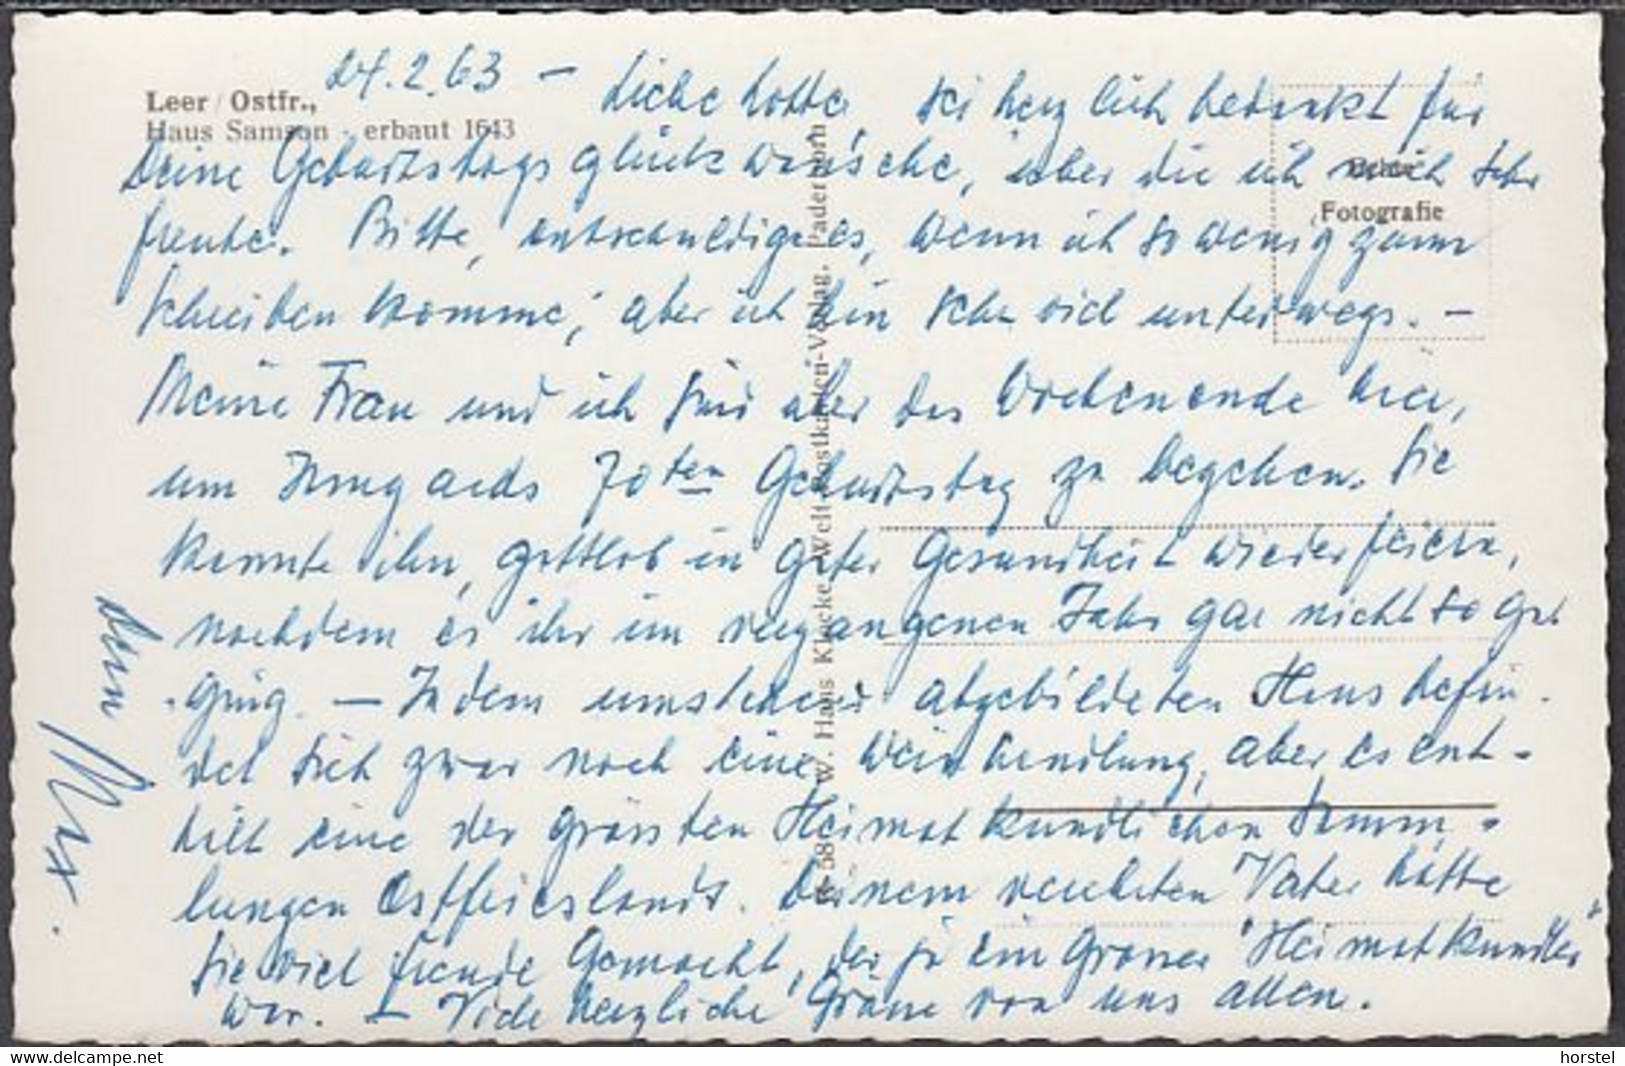 Leer / Ostfr.,
Haus Samson - erbaut 1643
24.2.63 – Liebe Lotte, sei herzlich bedankt für
Deine Geburtstagsglückwünsche, über die ich mich sehr
freute. Bitte, entschuldige es, wenn ich so wenig zum
Schreiben komme, aber ich bin sehr viel unterwegs. –
Meine Frau und ich sind über das Wochenende hier,
um Irmgards 70ten Geburtstag zu begehen. Sie
konnte ihn, gottlob in guter Gesundheit wieder feiern,
nachdem es ihr im vergangenen Jahr gar nicht so gut
ging. – In dem umstehend abgebildeten Haus befin-
det sich zwar noch eine Weinhandlung, aber es ent-
hält eine der grössten Heimatkundlichen Samm-
lungen Ostfrieslands. Deinem verehrten Vater hätte
sie viel Freude gemacht, der ja ein grosser "Heimatkundler"
war. – Viele herzliche Grüsse von uns allen.
Dein Max.
Fotografie
W. Hans Klocke Welt-Postkarten-Verlag, Paderborn
horstel
www.delcampe.net